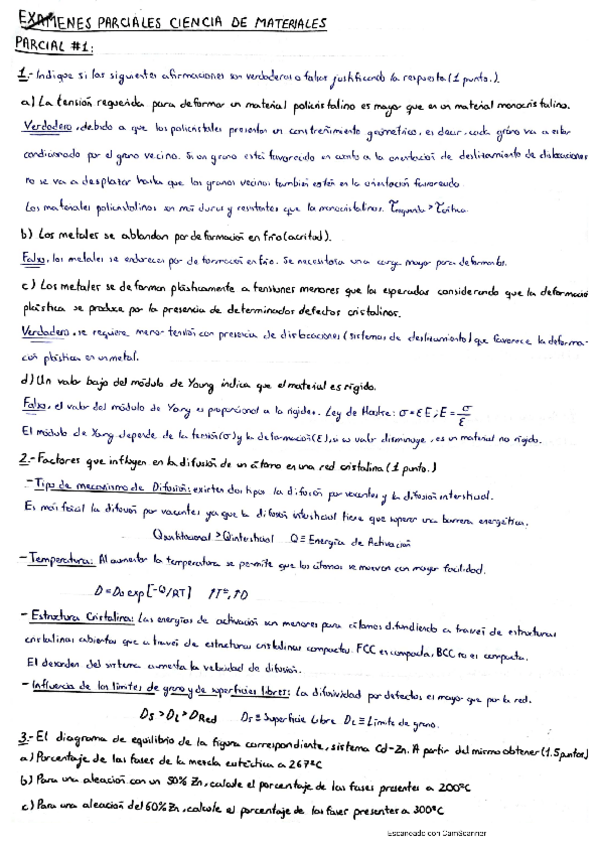 EXAMENES PARCIALES CIENCIA DE MATERIALES
PARCIAL #1:
1.- Indique si las siguientes afirmaciones son verdaderas o falsas justificando la respuesta (1 punto.).
a) La tensión requerida para deformar un material policristalino es mayor que en un material monocristalino.
Verdadero, debido a que los policristales presentan un constreñimiento geométrico, es decir, cada grano va a estar
condicionado por el grano vecino. Si un grano está favorecido en cuanto a la orientación de deslizamiento de dislocaciones
no se va a desplazar hasta que los granos vecinos también estén en la orientación favorecida.
Los materiales policristalinos son más duros y resistentes que los monocristalinos. τ > τcrítica.
b) Los metales se ablandan por deformación en frío (acritud).
Falso, los metales se endurecen por deformación en frío. Se necesitaría una carga mayor para deformarlos.
c) Los metales se deforman plásticamente a tensiones menores que las esperadas considerando que la deformació
plástica se produce por la presencia de determinados defectos cristalinos.
Verdadero, se requiere menor tensión con presencia de dislocaciones (sistemas de deslizamiento) que favorece la deforma-
ción plástica en un metal.
d) Un valor bajo del módulo de Young indica que el material es rígido.
Falso, el valor del módulo de Young es proporcional a la rigidez. Ley de Hooke: σ = εE; E = σ/ε
El módulo de Young depende de la tensión (σ) y la deformación (ε), si su valor disminuye, es un material no rígido.
2.- Factores que influyen en la difusión de un átomo en una red cristalina (1 punto.)
- Tipo de mecanismo de Difusión: existen dos tipos la difusión por vacantes y la difusión intersticial.
Es más fácil la difusión por vacantes ya que la difusión intersticial tiene que superar una barrera energética.
Qsustitucional > Qintersticial Q ≡ Energía de Activación
- Temperatura: Al aumentar la temperatura se permite que los átomos se muevan con mayor facilidad.
D = Do exp[-Q/RT] ↑Tª, ↑D
- Estructura Cristalina: Las energías de activación son menores para átomos difundiendo a través de estructuras
cristalinas abiertas que a través de estructuras cristalinas compactas. FCC es compacta, BCC no es compacta.
El desorden del sistema aumenta la velocidad de difusión.
- Influencia de los límites de grano y de superficies libres: La difusividad por defectos es mayor que por la red.
Ds > DL > DRed Ds ≡ Superficie Libre DL ≡ Límite de grano.
3.- El diagrama de equilibrio de la figura correspondiente, sistema Cd-Zn. A partir del mismo obtener (1.5 puntos.)
a) Porcentaje de las fases de la mezcla eutéctica a 267ºC
b) Para una aleación con un 50% Zn, calcule el porcentaje de las fases presentes a 200ºC
c) Para una aleación del 60% Zn, calcule el porcentaje de las fases presentes a 300ºC
Escaneado con CamScanner